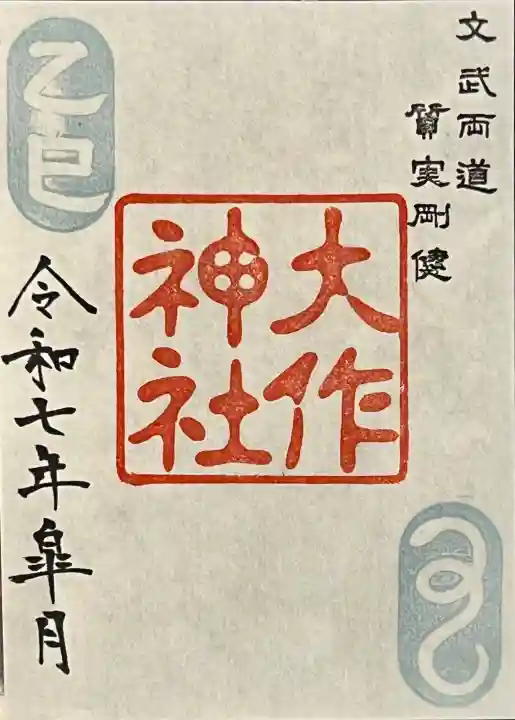 文武両道
質実剛健
大作
神社
乙巳
令和七年皐月